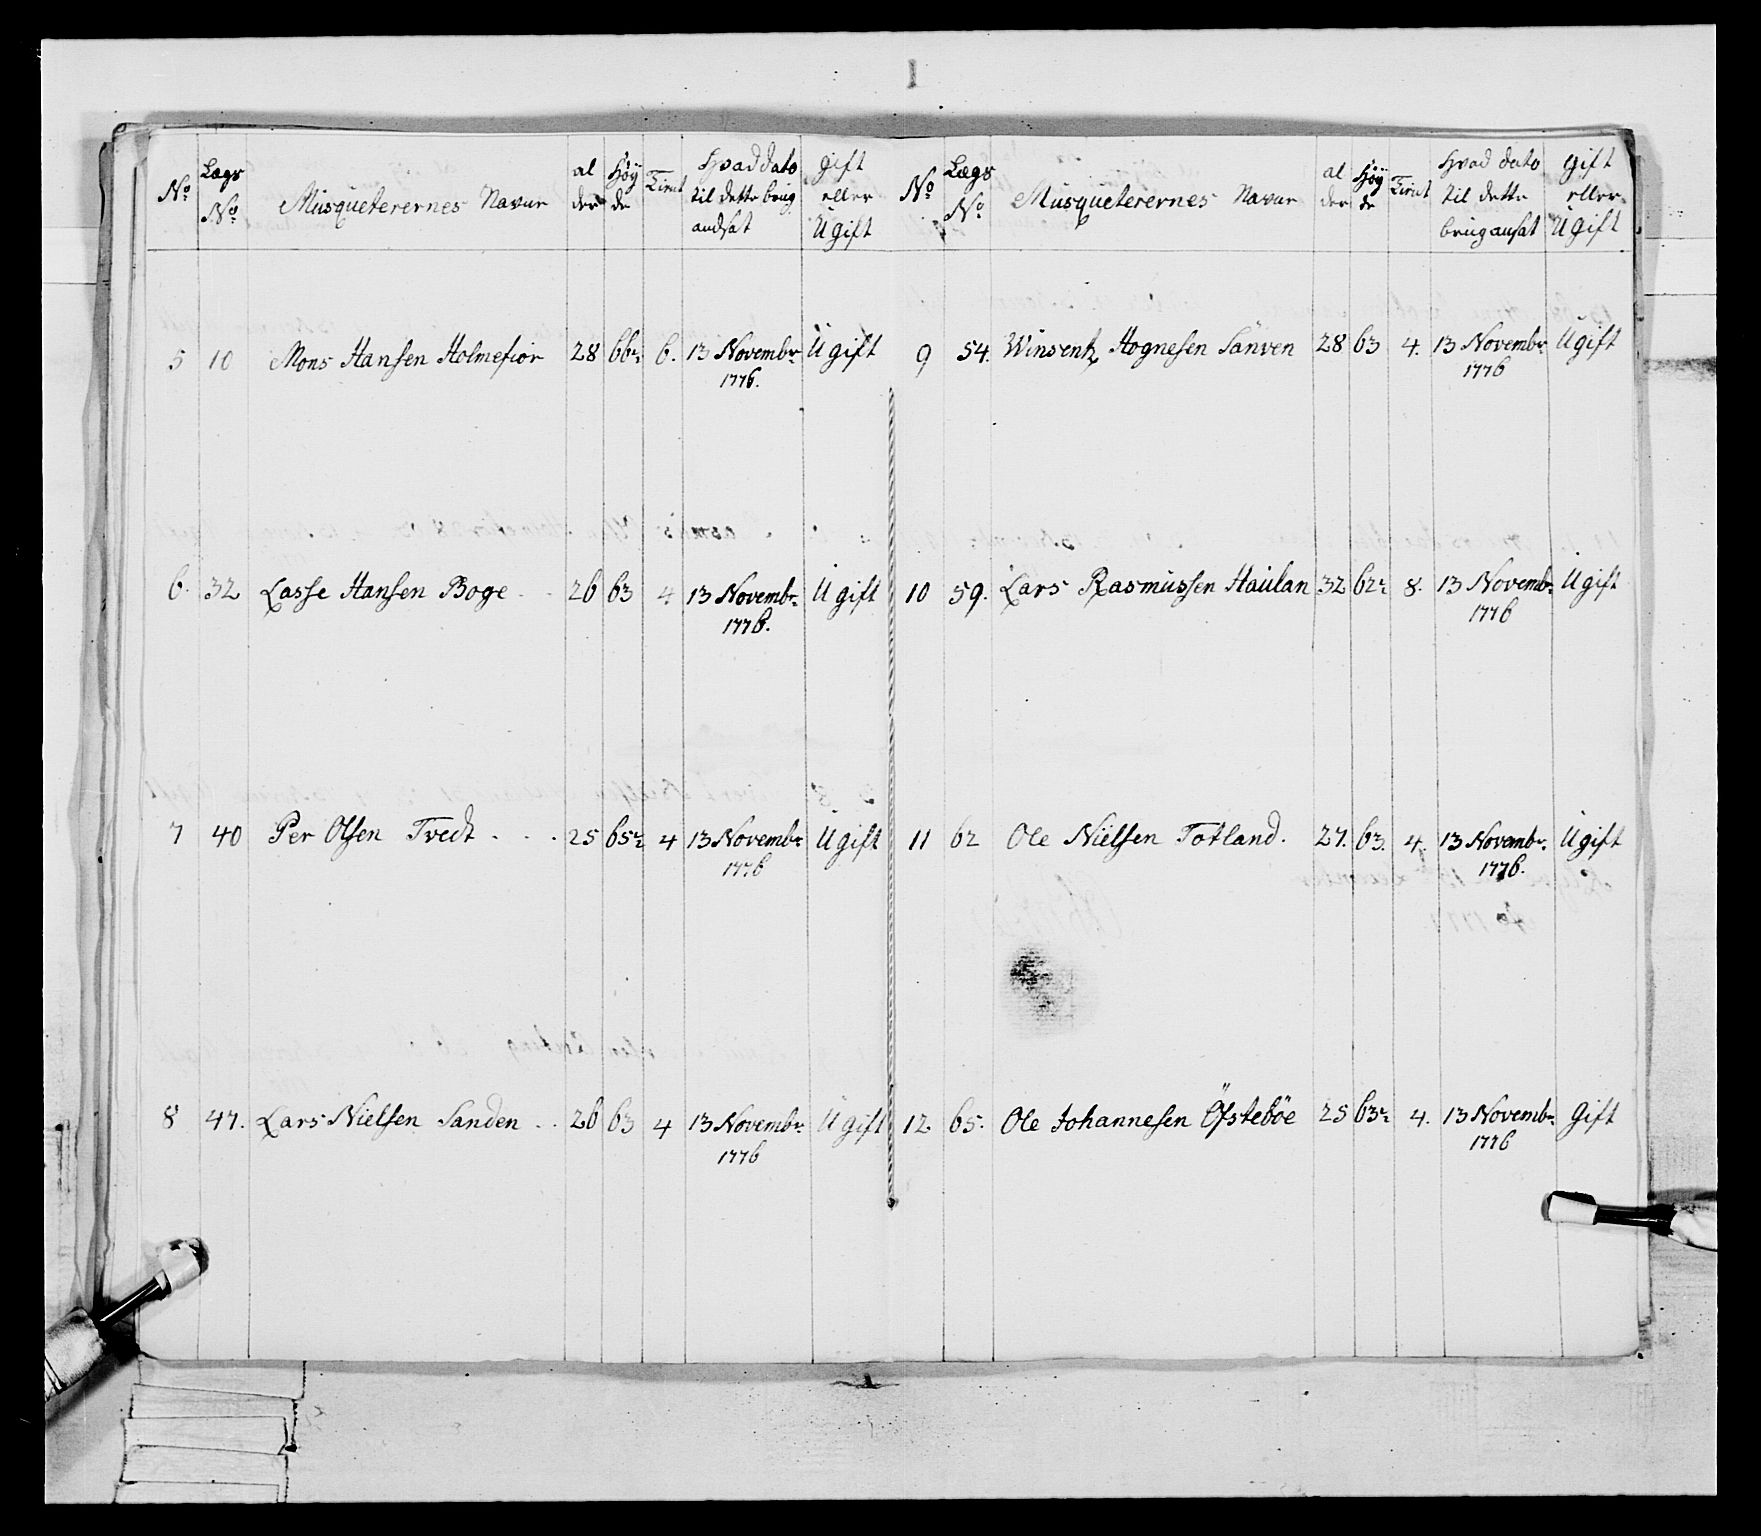 No Lægs No Musqueterernes Navne al der Høy de Tient Hvad dato til dette brug andsat gift eller Ugift
5 10 Mons Hansen Holmefior 28 66 2 6. 13 Novembr. Ugift
1776.
6. 32 Lasse Hansen Boge . . 26 63 4 13 Novembr. Ugift
1776.
7 40 Per Olsen Tvedt . . . 25 65 2 4 13 Novembr. Ugift
1776
8 47. Lars Nielsen Sanden . . 26 63 4 13 Novembr. Ugift
1776
No Lægs No Musqueterernes Navne al der Høy de Tient Hvad dato til dette brug ansat gift eller Ugift
9 54. Winsentz Hognesen Sanven 28 63 4. 13 Novembr. Ugift
1776
10 59. Lars Rasmussen Haulan 32 62 2 8. 13 Novembr. Ugift
1776
11 62 Ole Nielsen Totland. 27. 63. 4. 13 Novembr. Ugift
1776.
12 65. Ole Johannesen Öfstebøe 25 63 2 4. 13 Novembr. Gift
1776